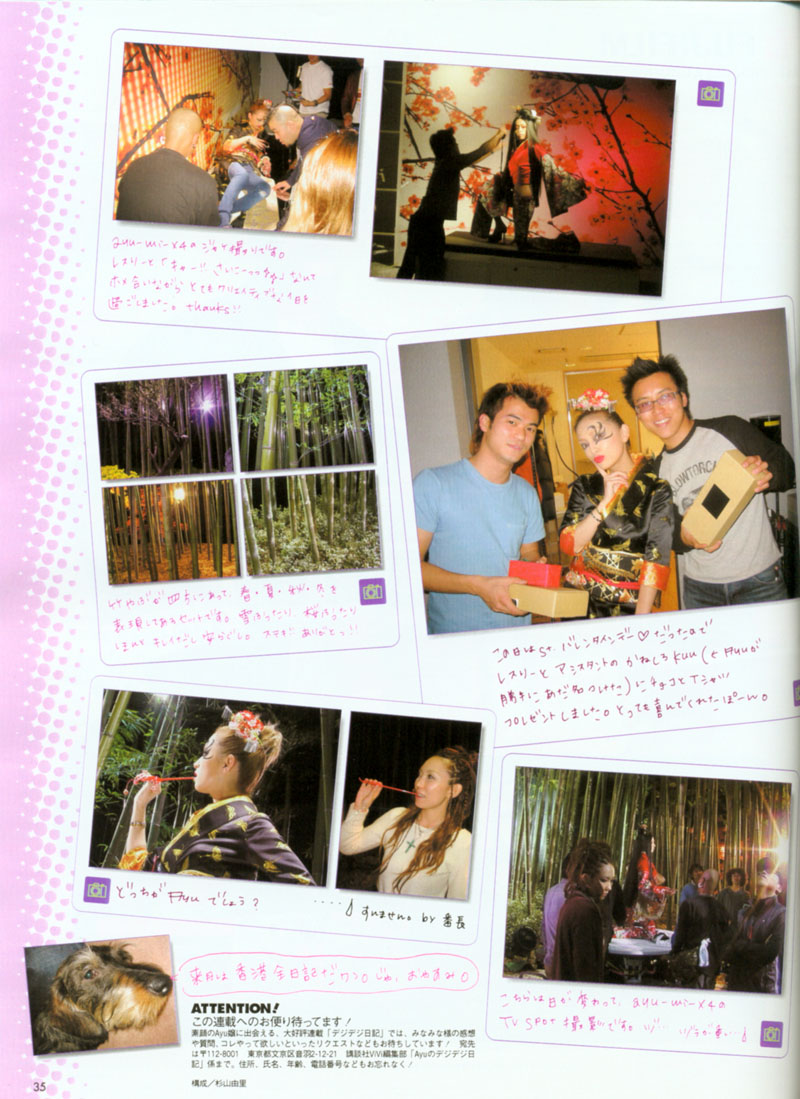 ayu-mi-x4のジャケ撮りです。
レスリーと「キャー!! さいこーっっすね」なんて
ホメ合いながら とてもクリエイティブな1日を
過ごしました。thanks!!
竹やぶが四方にあって、春・夏・秋・冬を
表現してあるセットです。雪ふったり、桜ふったり
ほんと キレイだし 安らぐし。ステキ ありがとっ!!
この日はSt.バレンタインデー♡だったので
レスリーと アシスタントの かねしろkuu(とAyuが
勝手にあだ名つけた)に チョコと Tシャツ
プレゼントしました。とっても喜んでくれたぽーん。
BLOWTORCH
どっちが Ayu でしょう?
‥‥すいません。by 番長
こちらは日が変わって、ayu-mi-x4の
TV SPOT 撮影です。
来月は 香港 全日記だワン。じゃ、おやすみ。
ATTENTION!
この連載へのお便り待ってます!
素顔のAyu嬢に出会える、大好評連載「デジデジ日記」では、みなみな様の感想
や質問、コレやって欲しいといったリクエストなどもお待ちしています! 宛先
は〒112-8001 東京都文京区音羽2-12-21 講談社ViVi編集部「Ayuのデジデジ日
記」係まで。住所、氏名、年齢、電話番号などもお忘れなく!
構成/杉山由里
35